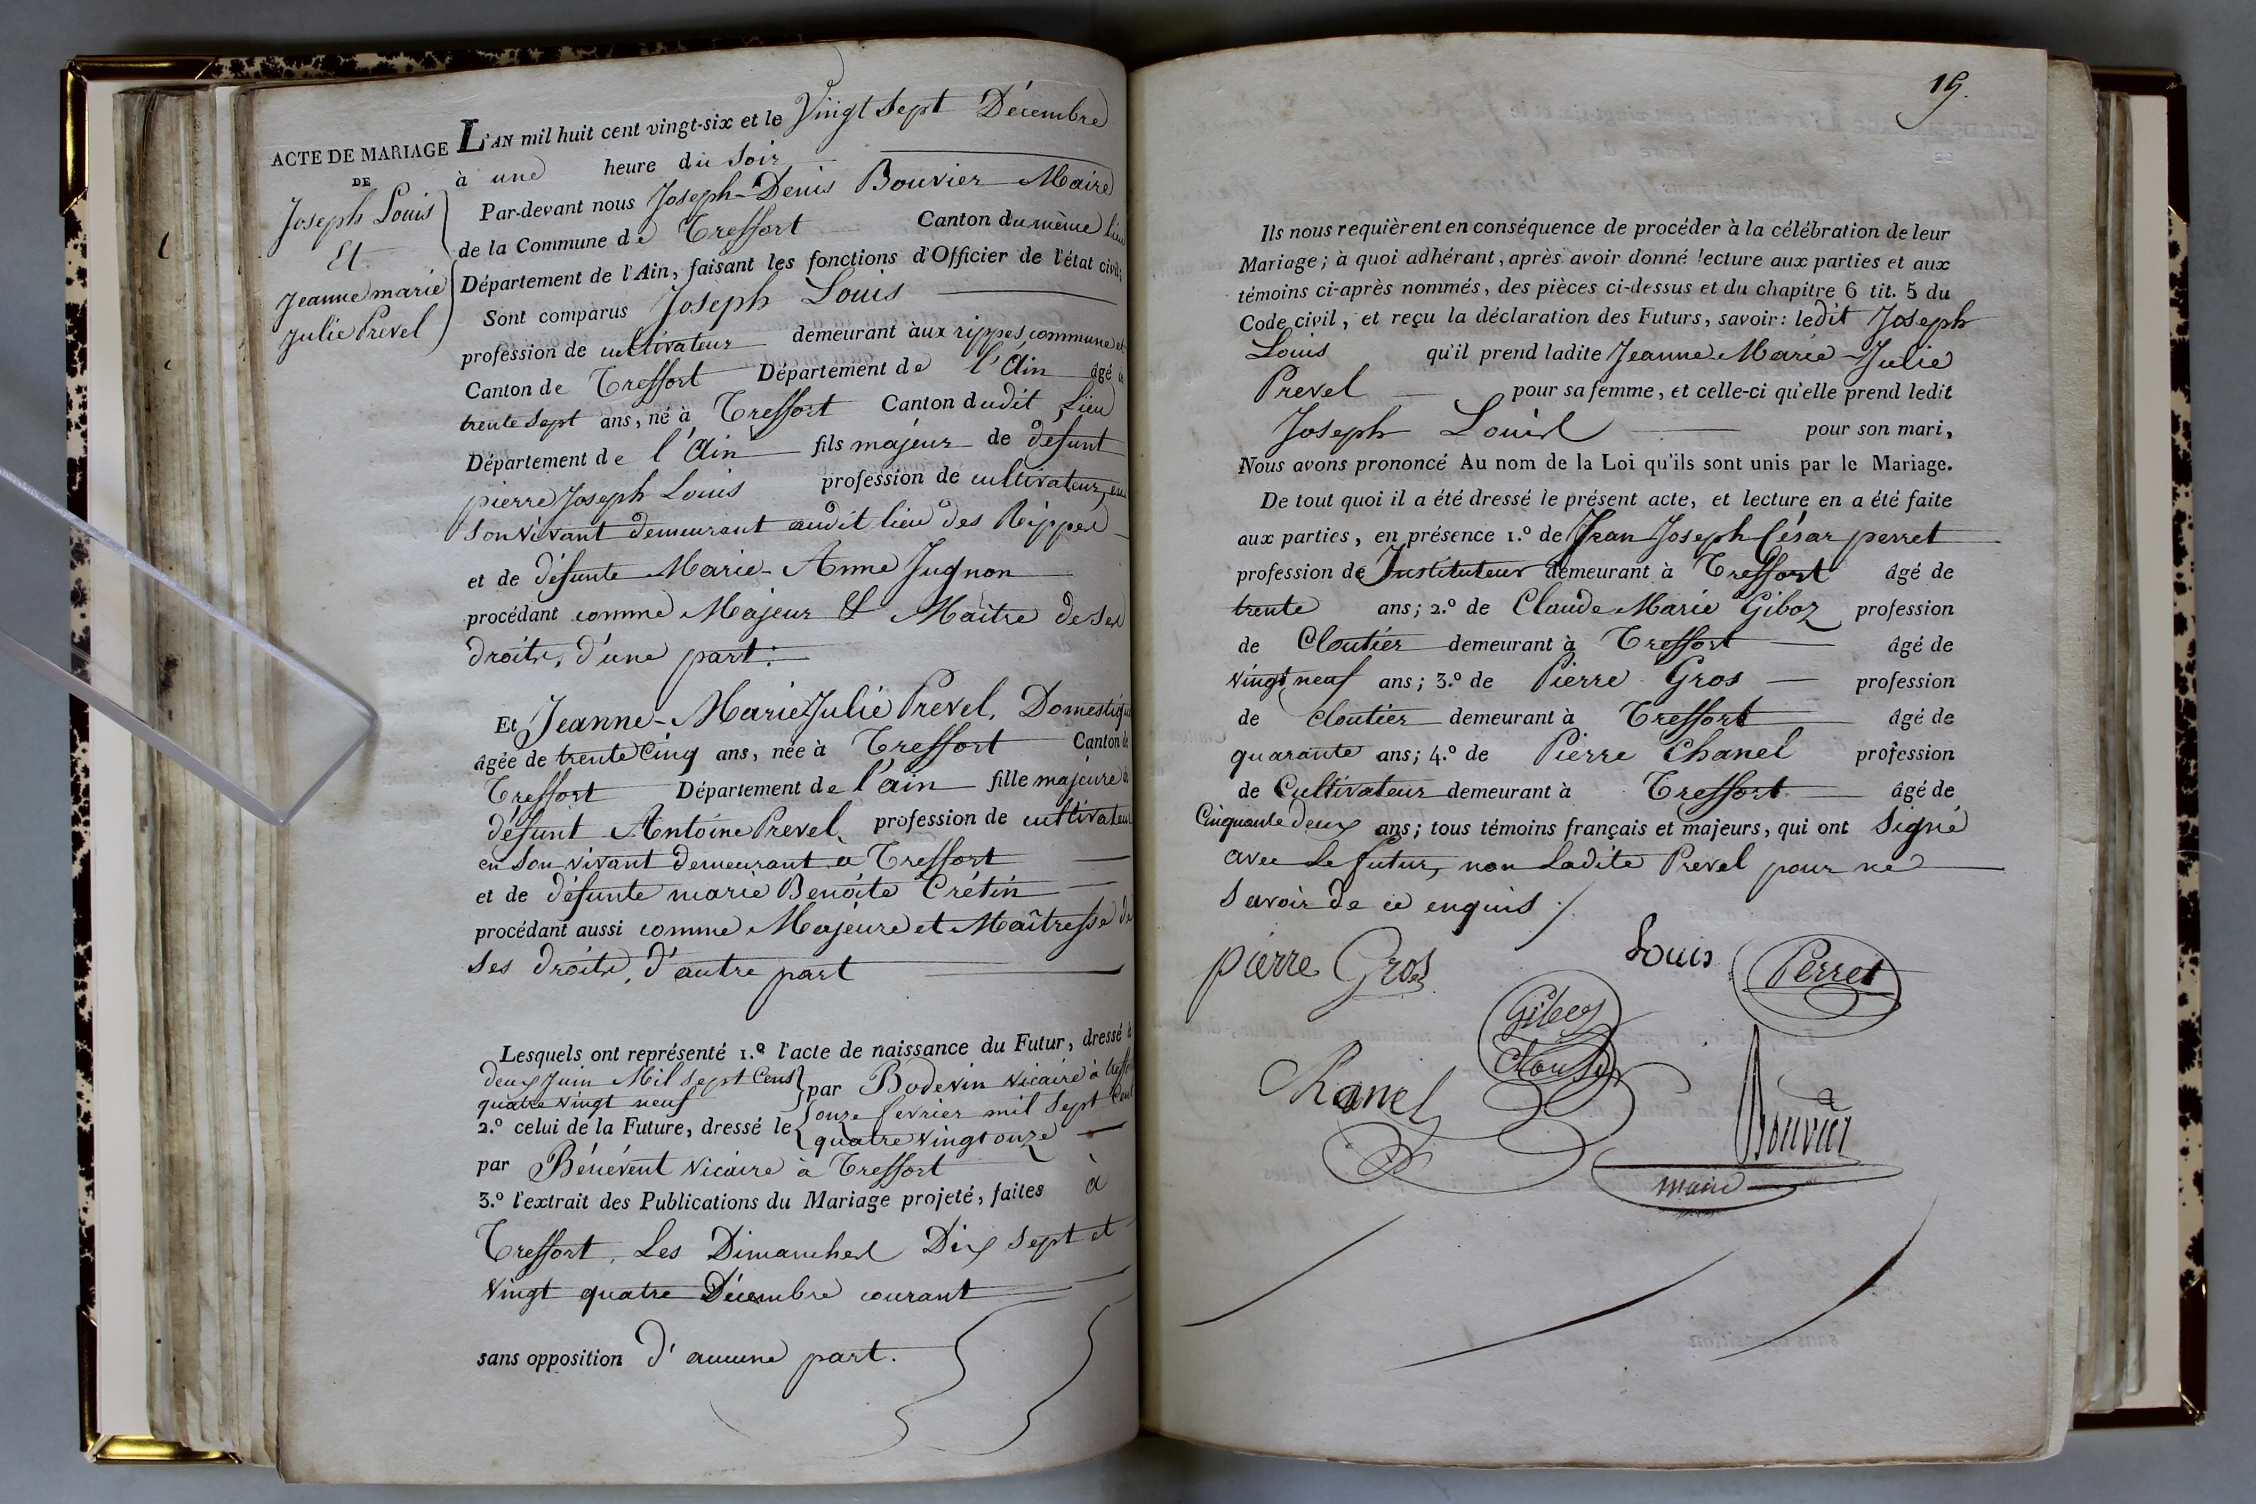 ACTE DE MARIAGE
DE
Joseph Louis
Et
Jeanne marie
Julie Prevel
L'AN mil huit cent vingt-six et le Vingt sept Décembre
à une heure du soir
Par-devant nous Joseph-Denis Bouvier Maire
de la Commune de Treffort Canton du même lieu
Département de l'Ain, faisant les fonctions d'Officier de l'état civil;
Sont comparus Joseph Louis
profession de cultivateur demeurant aux rippes commune et
Canton de Treffort Département de l'Ain âgé de
trente sept ans, né à Treffort Canton dudit Lieu
Département de l'Ain fils majeur de défunt
pierre Joseph Louis profession de cultivateur, en
son vivant demeurant audit lieu des Rippes
et de défunte Marie-Anne Jugnon
procédant comme Majeur et Maître de ses
droits, d'une part:
Et Jeanne-Marie Julie Prevel, Domestique
âgée de trente Cinq ans, née à Treffort Canton de
Treffort Département de l'ain fille majeure de
défunt Antoine Prevel, profession de cultivateur
en son vivant demeurant à Treffort
et de défunte marie Benoite Crétin
procédant aussi comme Majeure et Maîtresse de
ses droits, d'autre part
Lesquels ont représenté 1.º l'acte de naissance du Futur, dressé le
deux Juin Mil sept Cens
quatre vingt neuf par Bodevin vicaire à
2.º celui de la Future, dressé le onze fevrier mil sept Cent
quatre vingt onze
par Bénévent vicaire à Treffort
3.º l'extrait des Publications du Mariage projeté, faites à
Treffort, Les Dimanches Dix sept et
vingt quatre Décembre courant
sans opposition d'aucune part.
19.
Ils nous requièrent en conséquence de procéder à la célébration de leur
Mariage; à quoi adhérant, après avoir donné lecture aux parties et aux
témoins ci-après nommés, des pièces ci-dessus et du chapitre 6 tit. 5 du
Code civil, et reçu la déclaration des Futurs, savoir: ledit Joseph
Louis qu'il prend ladite Jeanne-Marie-Julie
Prevel pour sa femme, et celle-ci qu'elle prend ledit
Joseph Louis pour son mari,
Nous avons prononcé Au nom de la Loi qu'ils sont unis par le Mariage.
De tout quoi il a été dressé le présent acte, et lecture en a été faite
aux parties, en présence 1.º de Jean Joseph César perret
profession de Instituteur demeurant à Treffort âgé de
trente ans; 2.º de Claude Marie Giboz profession
de Cloutier demeurant à Treffort âgé de
vingt neuf ans; 3.º de Pierre Gros profession
de cloutier demeurant à Treffort âgé de
quarante ans; 4.º de Pierre Chanel profession
de Cultivateur demeurant à Treffort âgé de
Cinquante deux ans; tous témoins français et majeurs, qui ont signé
avec le futur, non ladite Prevel pour ne
savoir de ce enquis ./.
pierre Gros
Louis
Perret
Giboz
Chanel
Bouvier
maire